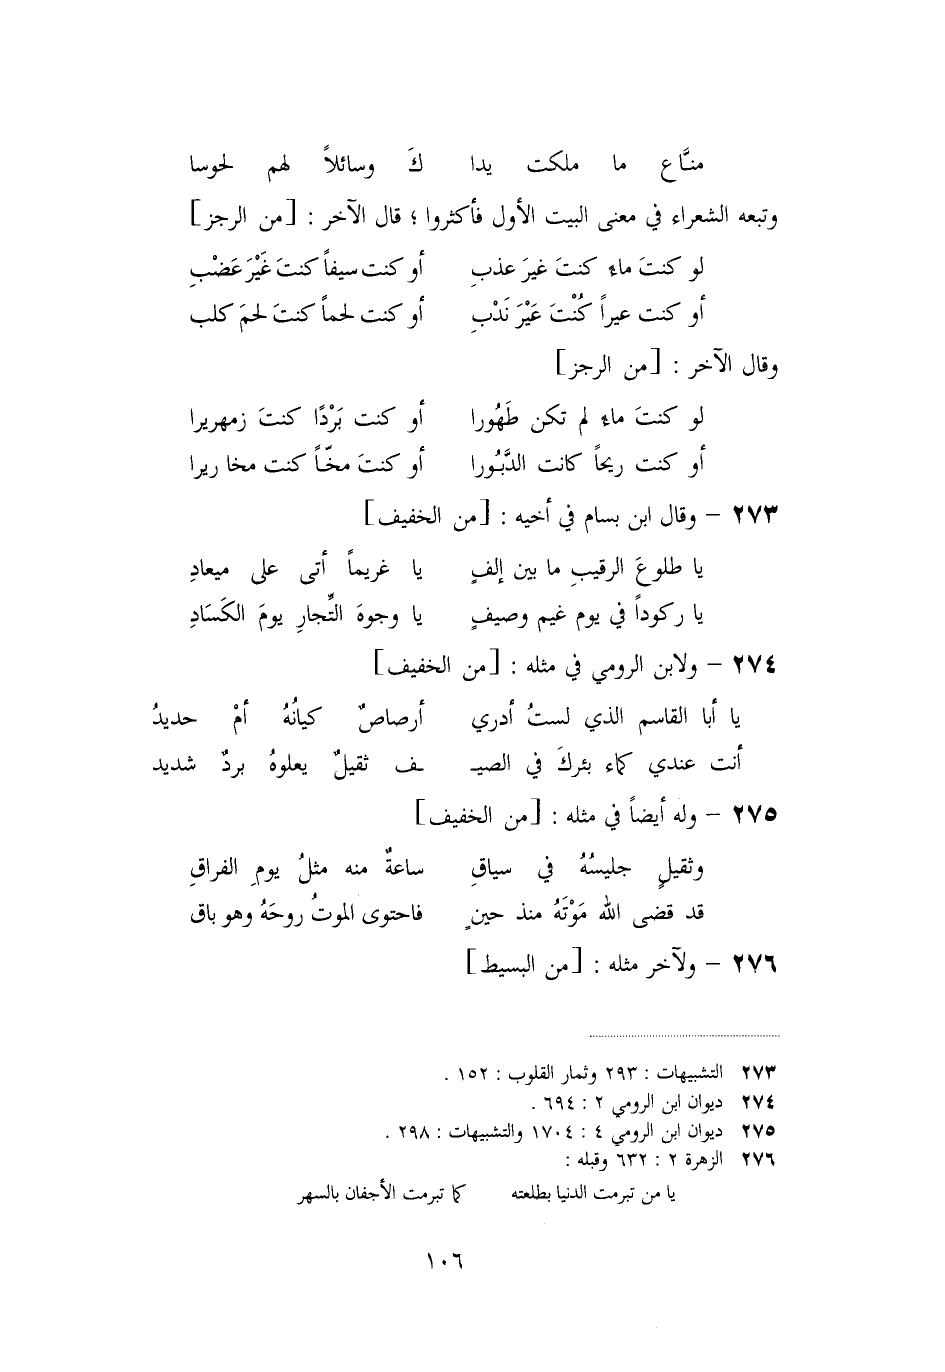 منَّاع ما ملكت يدا كَ وسائلاً لهم لحوسا
وتبعه الشعراء في معنى البيت الأول فأكثروا ؛ قال الآخر : [من الرجز]
لو كنتَ ماءً كنتَ غيرَ عذبِ أو كنت سيفاً كنتَ غَيْرَ عَضْبِ
أو كنت عيراً كُنْتَ عَيْرَ نَدْبِ أو كنت لحماً كنتَ لحمَ كلب
وقال الآخر : [من الرجز]
لو كنتَ ماءً لم تكن طَهُورا أو كنت بَرْدًا كنتَ زمهريرا
أو كنت ريحاً كانت الدَّبُورا أو كنتَ مخّاً كنت مخا ريرا
٢٧٣ – وقال ابن بسام في أخيه : [من الخفيف]
يا طلوعَ الرقيبِ ما بين إلفٍ يا غريماً أتى على ميعادِ
يا ركوداً في يوم غيم وصيفٍ يا وجوهَ التِّجارِ يومَ الكَسَادِ
٢٧٤ – ولابن الرومي في مثله : [من الخفيف]
يا أبا القاسم الذي لستُ أدري أرصاصٌ كيانُهُ أمْ حديدُ
أنت عندي كماء بئركَ في الصيـ ـف ثقيلٌ يعلوهُ بردٌ شديد
٢٧٥ – وله أيضاً في مثله : [من الخفيف]
وثقيلٍ جليسُهُ في سياقِ ساعةٌ منه مثلُ يومِ الفراقِ
قد قضى الله مَوْتَهُ منذ حينٍ فاحتوى الموتُ روحَهُ وهو باق
٢٧٦ – ولآخر مثله : [من البسيط]
٢٧٣ التشبيهات : ٢٩٣ وثمار القلوب : ١٥٢ .
٢٧٤ ديوان ابن الرومي ٢ : ٦٩٤ .
٢٧٥ ديوان ابن الرومي ٤ : ١٧٠٤ والتشبيهات : ٢٩٨ .
٢٧٦ الزهرة ٢ : ٦٣٢ وقبله :
يا من تبرمت الدنيا بطلعته كما تبرمت الأجفان بالسهر
١٠٦